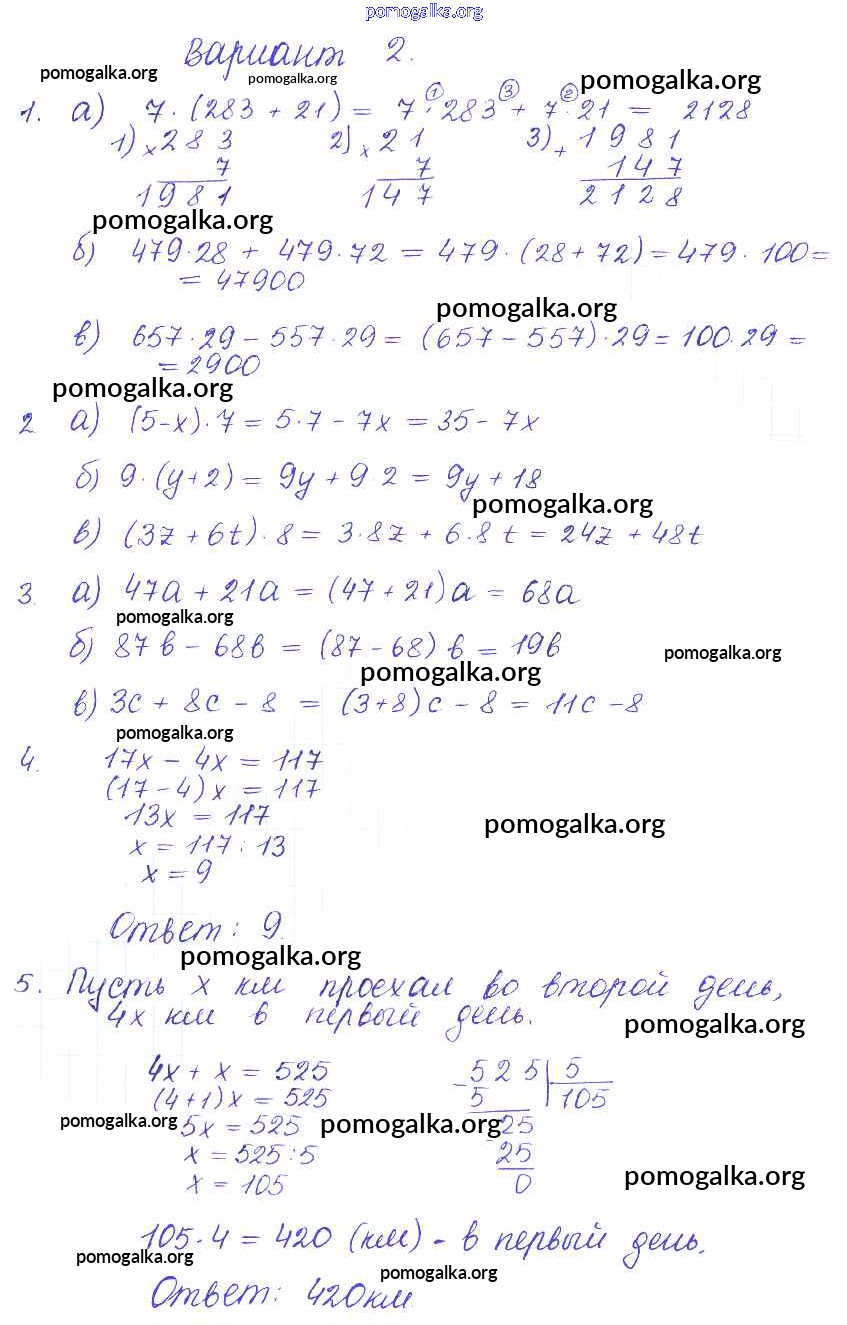 pomogalka.org
Вариант 2.
pomogalka.org pomogalka.org pomogalka.org
1. а) 7·(283 + 21) = 7·283 + 7·21 = 2128
① ③ ②
1) × 283 2) × 21 3) + 1981
7 7 147
1981 147 2128
pomogalka.org
б) 479·28 + 479·72 = 479·(28+72) = 479·100=
= 47900
pomogalka.org
в) 657·29 - 557·29 = (657 - 557)·29 = 100·29 =
= 2900
pomogalka.org
2 а) (5-x)·7 = 5·7 - 7x = 35 - 7x
б) 9·(y+2) = 9y + 9 2 = 9y + 18
pomogalka.org
в) (3z + 6t)·8 = 3·8z + 6·8 t = 24z + 48t
3. а) 47a + 21a = (47 + 21)a = 68a
pomogalka.org
б) 87b - 68b = (87 - 68) b = 19b
pomogalka.org
pomogalka.org
в) 3c + 8c - 8 = (3+8)c - 8 = 11c - 8
pomogalka.org
4. 17x - 4x = 117
(17 - 4)x = 117
13x = 117
pomogalka.org
x = 117 : 13
x = 9
Ответ: 9.
pomogalka.org
5. Пусть x км проехал во второй день,
4x км в первый день.
pomogalka.org
4x + x = 525 - 525 | 5
(4+1)x = 525 5 105
pomogalka.org 5x = 525 pomogalka.org 25
x = 525 : 5 - 25
x = 105 0
pomogalka.org
105·4 = 420 (км) - в первый день.
pomogalka.org
pomogalka.org
Ответ: 420км